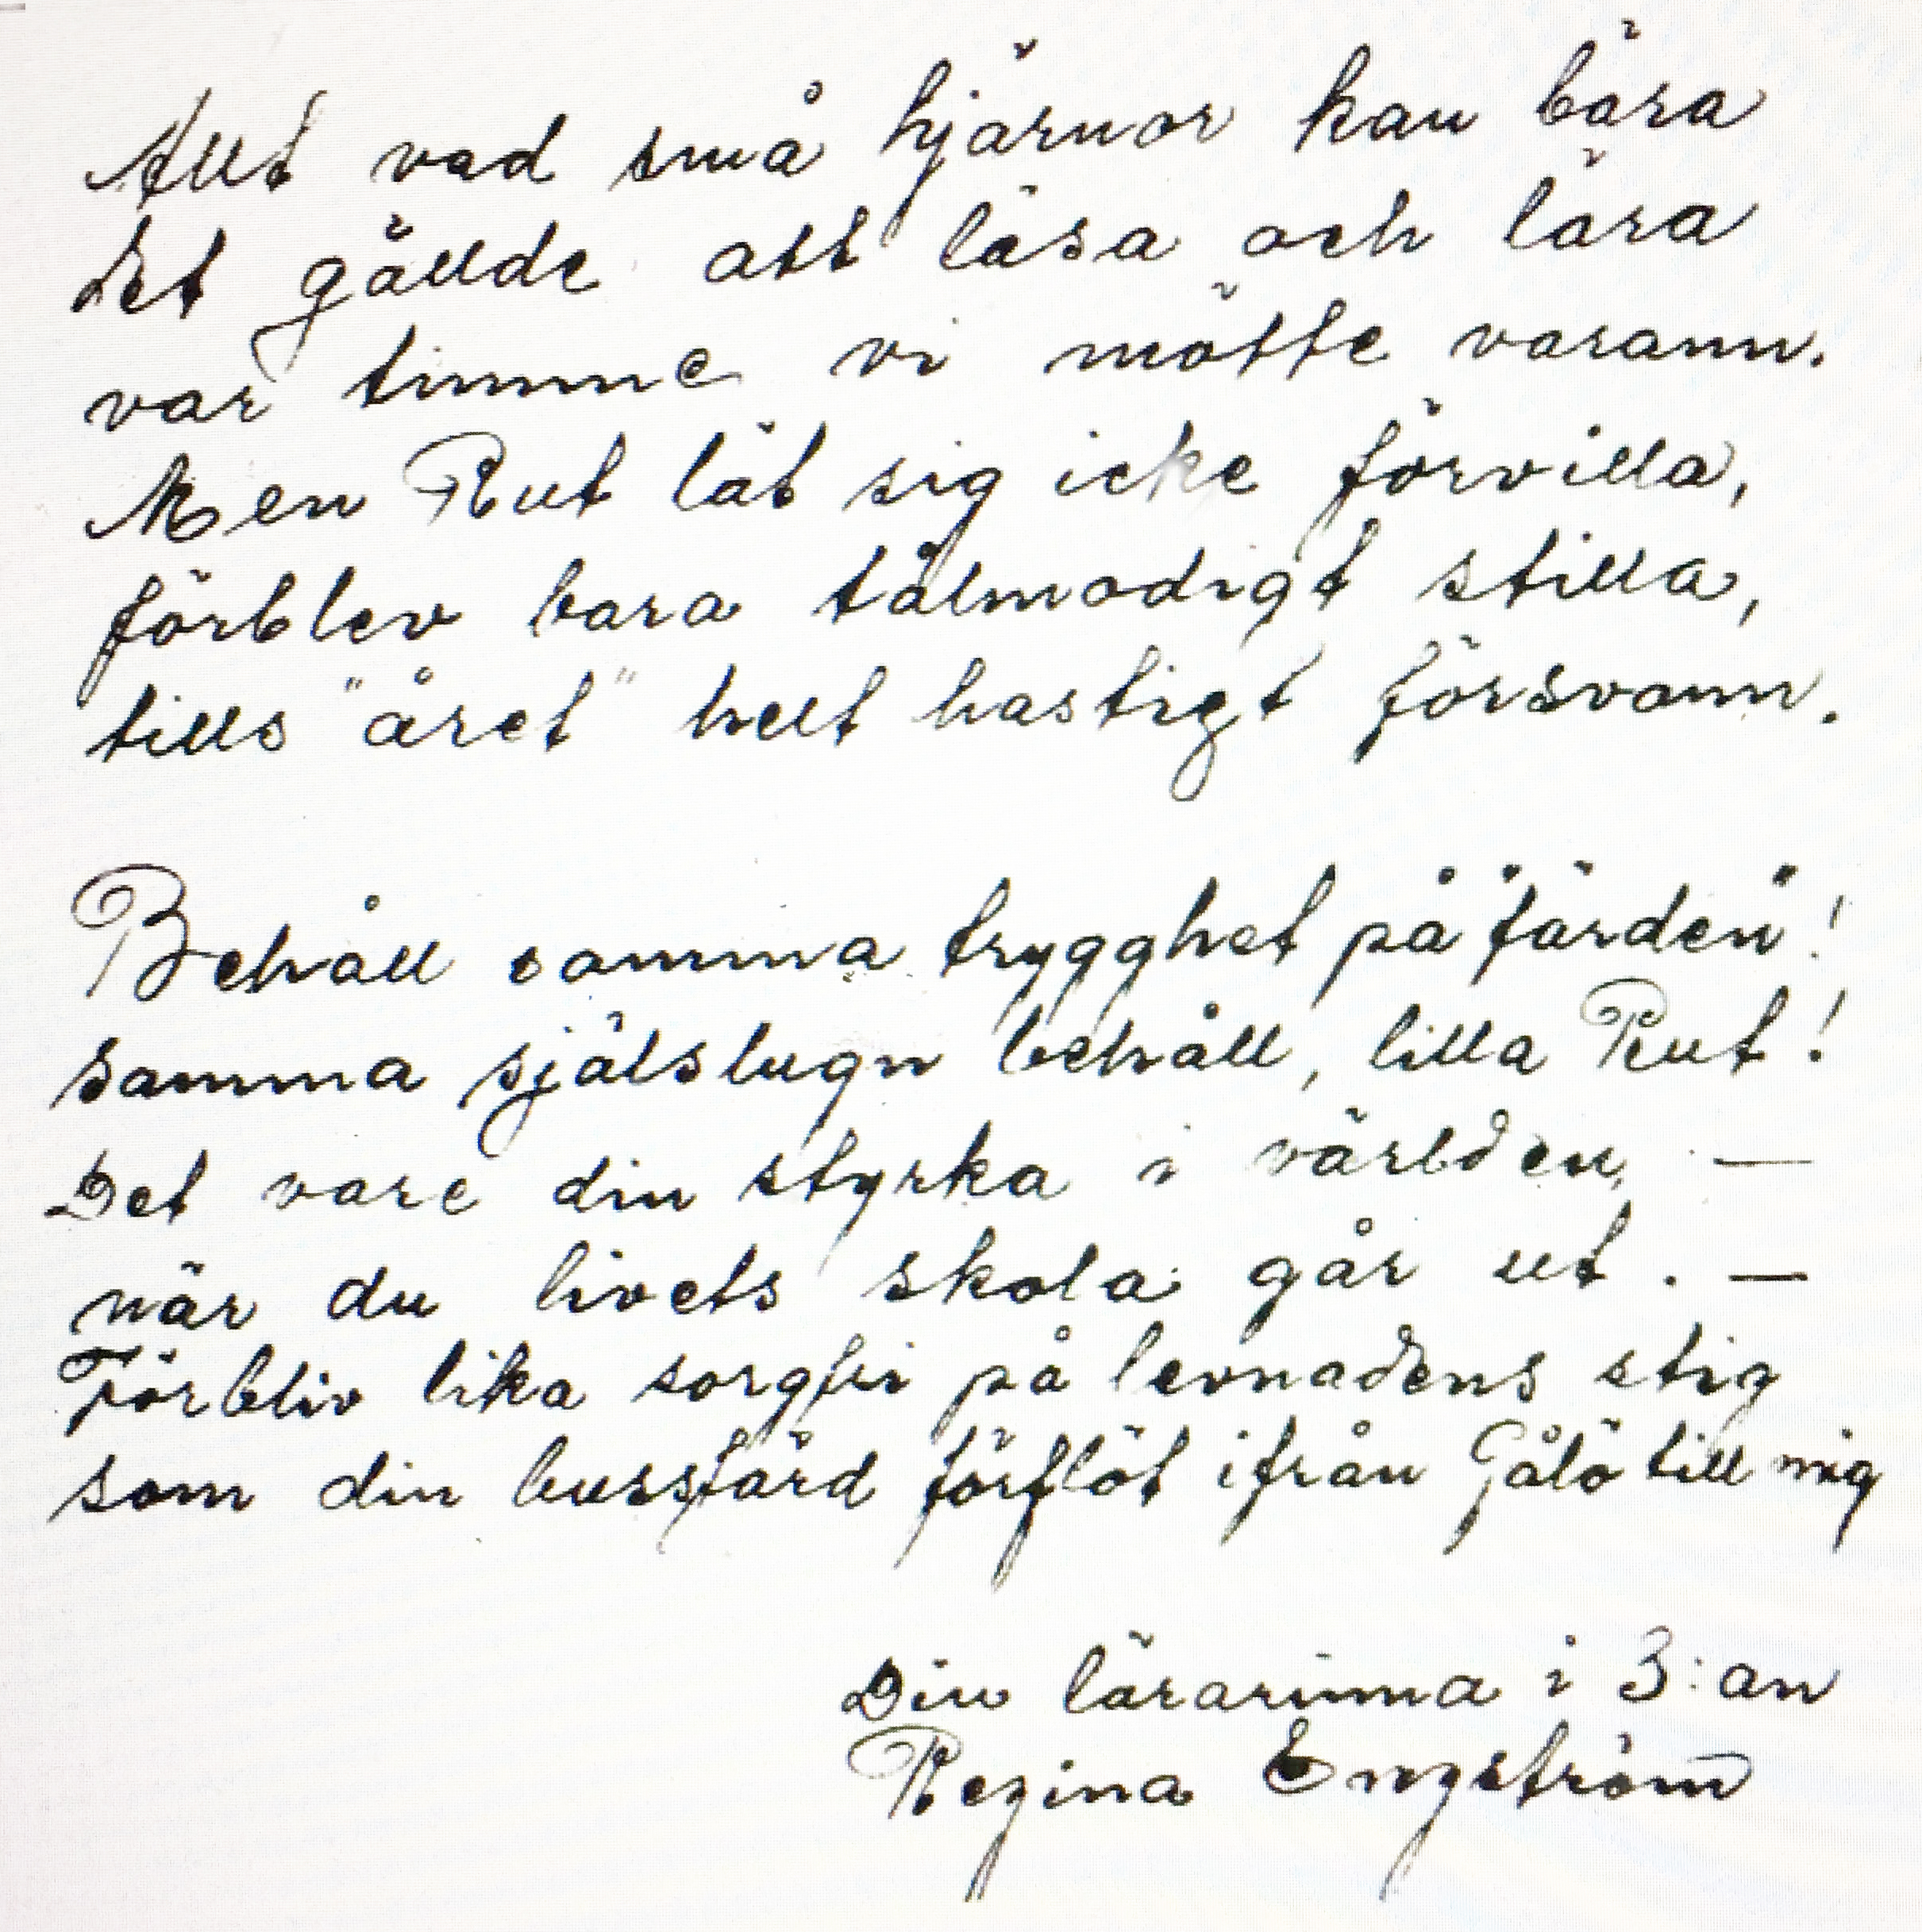 Allt vad små hjärnor kan bära
det gällde att läsa och lära
var timme vi mötte varann.
Men Rut lät sig icke förvilla,
förblev bara tålmodigt stilla,
tills "året" helt hastigt försvann.
Behåll samma trygghet på "färden"!
samma själslugn behåll, lilla Rut!
Det vare din styrka i världen, —
när du livets skola går ut. —
Förbliv lika sorgfri på levnadens stig
som din bussfärd förflöt ifrån Gålö till mig
Din lärarinna i 3:an
Regina Engström